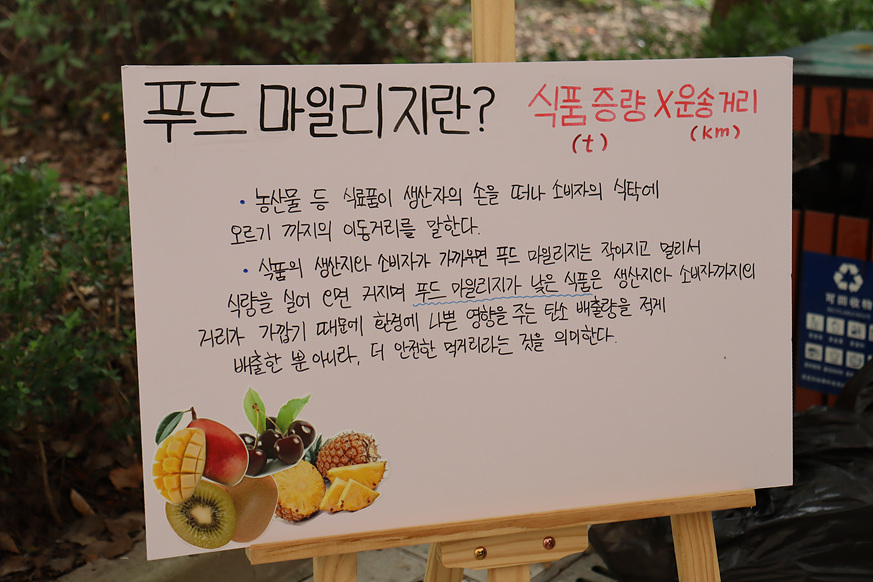 푸드 마일리지란? 식품 중량 X 운송거리
(t) (km)
• 농산물 등 식료품이 생산자의 손을 떠나 소비자의 식탁에
오르기 까지의 이동거리를 말한다.
• 식품의 생산지와 소비자가 가까우면 푸드 마일리지는 작아지고 멀리서
식량을 실어 오면 커지며 푸드 마일리지가 낮은 식품은 생산지와 소비자까지의
거리가 가깝기 때문에 환경에 나쁜 영향을 주는 탄소 배출량을 적게
배출한 뿐 아니라, 더 안전한 먹거리라는 것을 의미한다.
可回收物